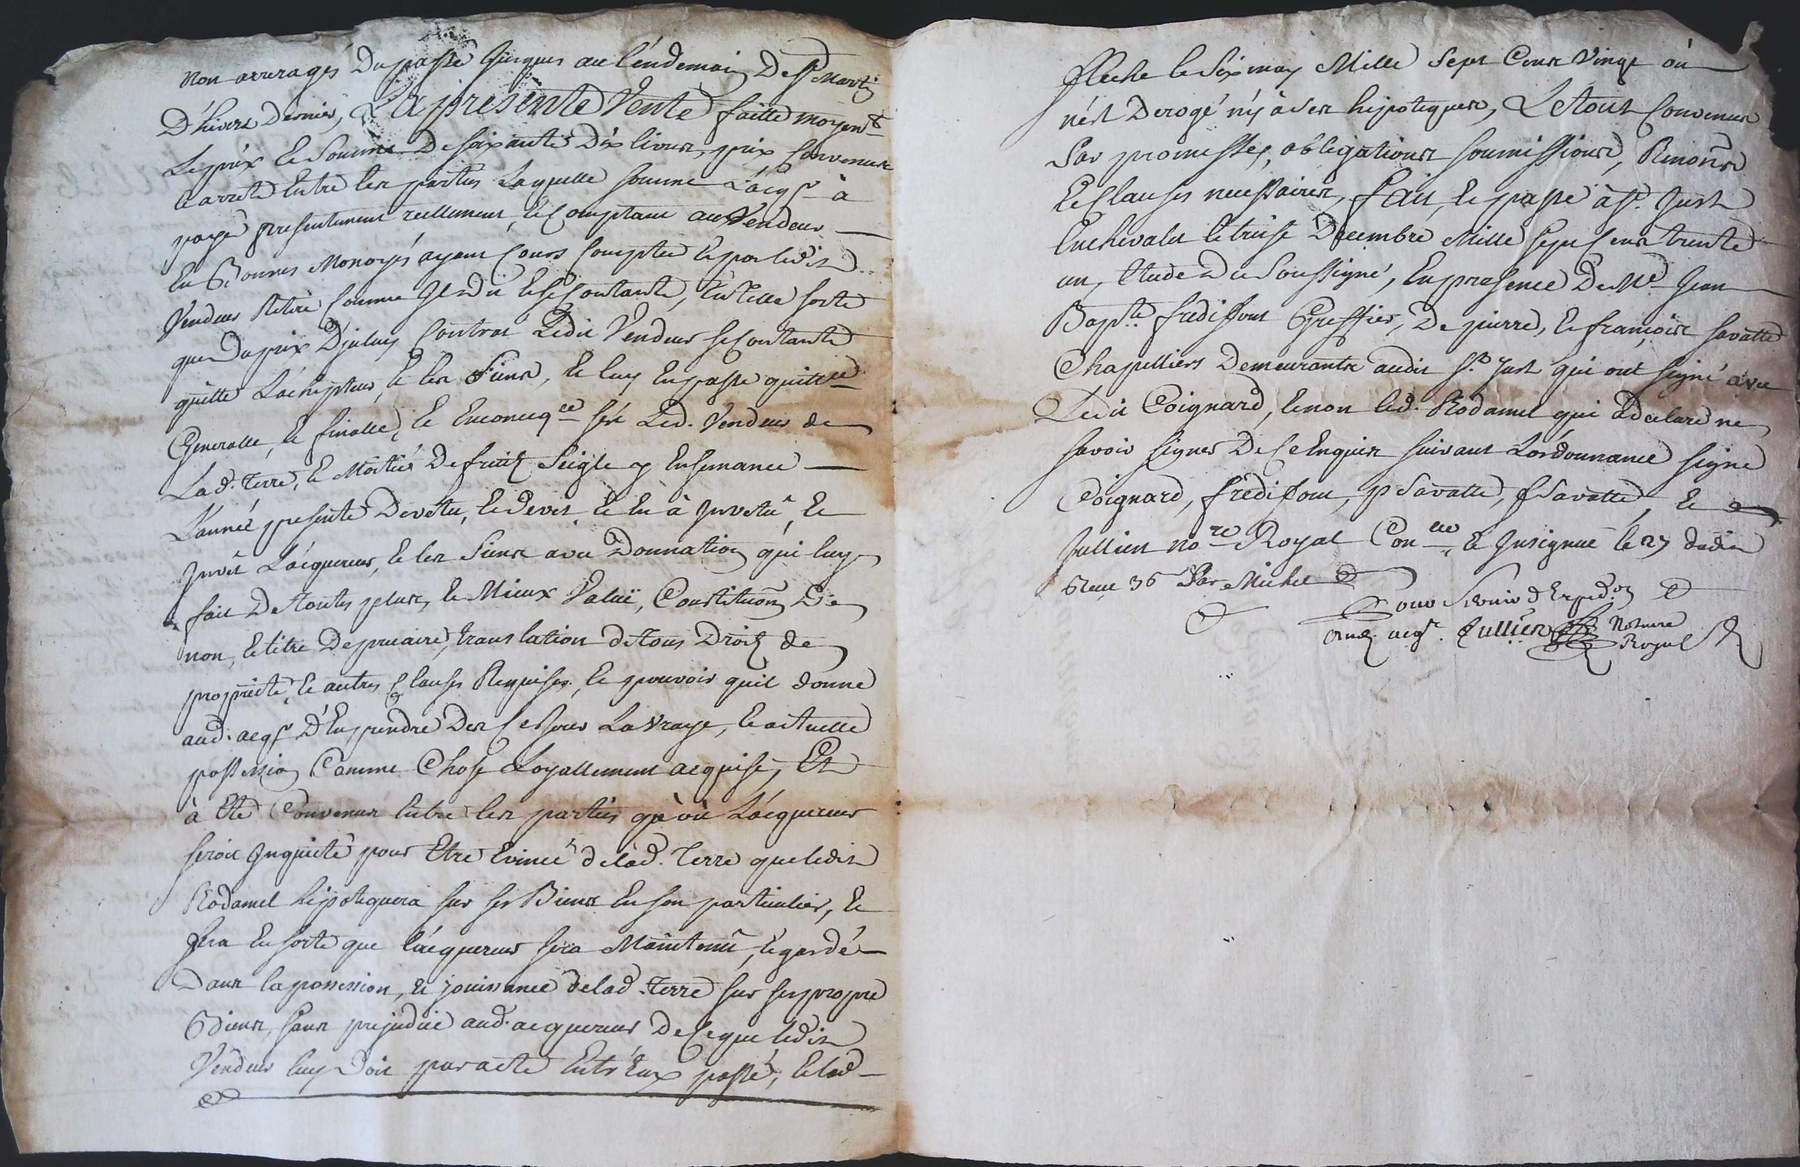 non arreragés du passé jusques au lendemain de st Martin
D'hivert dernier, La presente Vente faitte moyent
Le prix et somme De soixante Dix livres, prix convenue
et arreté entre les parties Laquelle somme L'acqr à
payé presentement reellement, et Comptant au Vendeur
En Bonnes Monoyes ayant Cours Comptée et par ledit
Vendeur Retiré comme Il a dit et se Contante, En telle sorte
que du prix D'iceluy Contrat Ledit Vendeur se Contante
quitte L'achepteur, et les siens, et luy En passe quittce
Generalle, et finalle, et Ledt. Vendeur de
Lad. Terre, et Moitié de fruit Seigle y Ensemancé
L'année presente Devetu, et Devet, et en à Investu, et
Invet L'acquereur, et les Siens avec Donnation qu'il luy
fait De toutes plus, et Mieux Value, Constitution De
non, et titre De precaire, translation de tous Droit de
proprieté, et autres Clauses Requises, et pouvoir qu'il donne
aud. acqr D'En prendre Des ce Jour La vraye, et actuelle
possession Comme Chose Loyallement acquise, Et
à Eté Convenue Entre les parties qu'où L'acquereur
seroit Inquieté pour Etre Evincé de lad. Terre que ledit
Rodamel hipotiquera sur ses Biens En son particulier, et
fera En sorte que l'acquereur sera Maintenu, et gardé
Dans la possession, et jouissance de lad. Terre sur ses propre
Biens, sans prejudice aud. acquereur De ce que ledit
Vendeur luy Doit par acte Entr'Eux passé, et led
fleche le six may Mille Sept Cent Vingt où
n'est Derogé n'y à ses hipotiques, Le tout Convenue
Par promesses, obligations soumissions, Renons
et Clauses necessaires, fait, et passé à st. Just
Enchevalet le treise Decembre Mille sept Cent trente
un, Etude Du Soussigné, En presence De Me Jean
Bapte fredifont Greffier, De pierre, et françois savatte
Chapelliers Demeurants audit st. Just qui ont signé avec
Ledit Coignard, et non led. Rodamel qui a Declaré ne
savoir signer De ce Enquis suivant L'ordonnance signé
Coignard, fredifont, p Savatte, f Savatte, et
Jullien nore Royal Conlé, et Insignué le 27 dudit
Reçu 36 Par Michel
Pour Servir d'Expedon
aud. acqr. Jullien Notaire
Royal